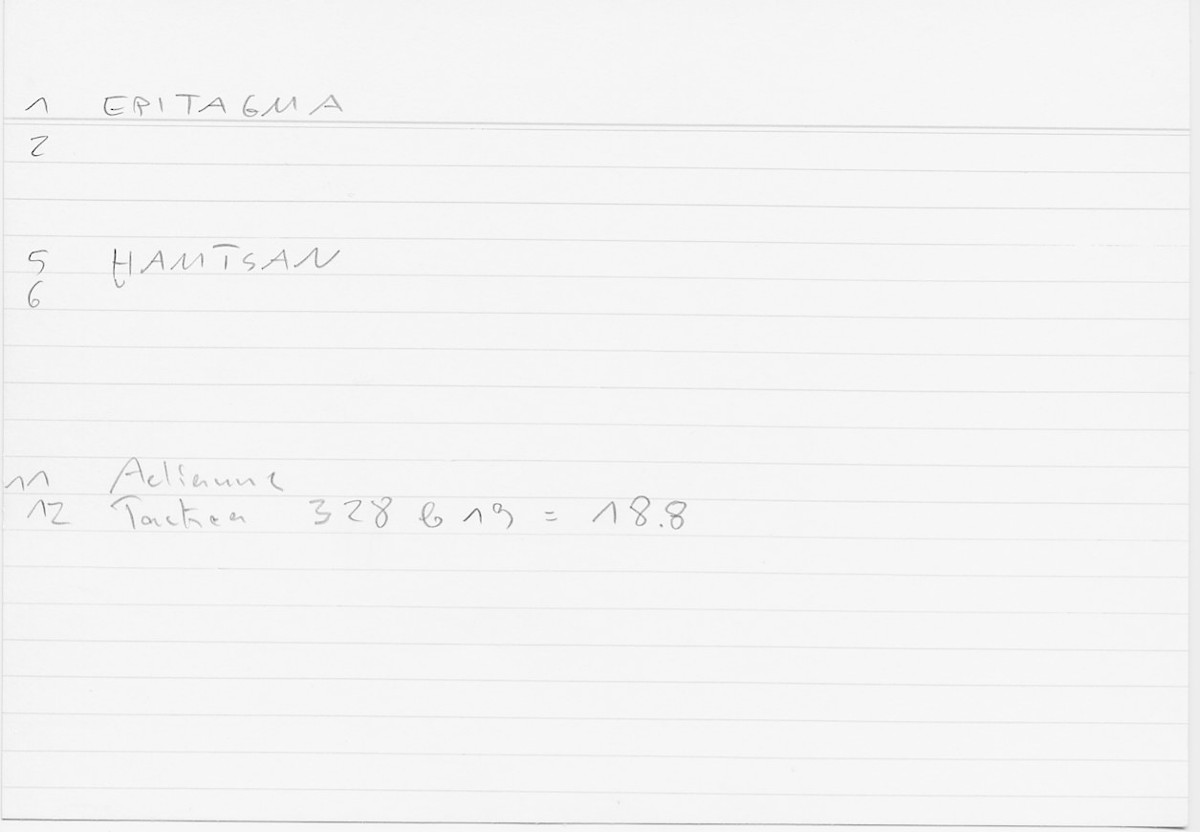 1 EPITAGMA
2
5 ḤAMTSAN
6
11 Aelianus
12 Tactica 328 b 19 = 18.8